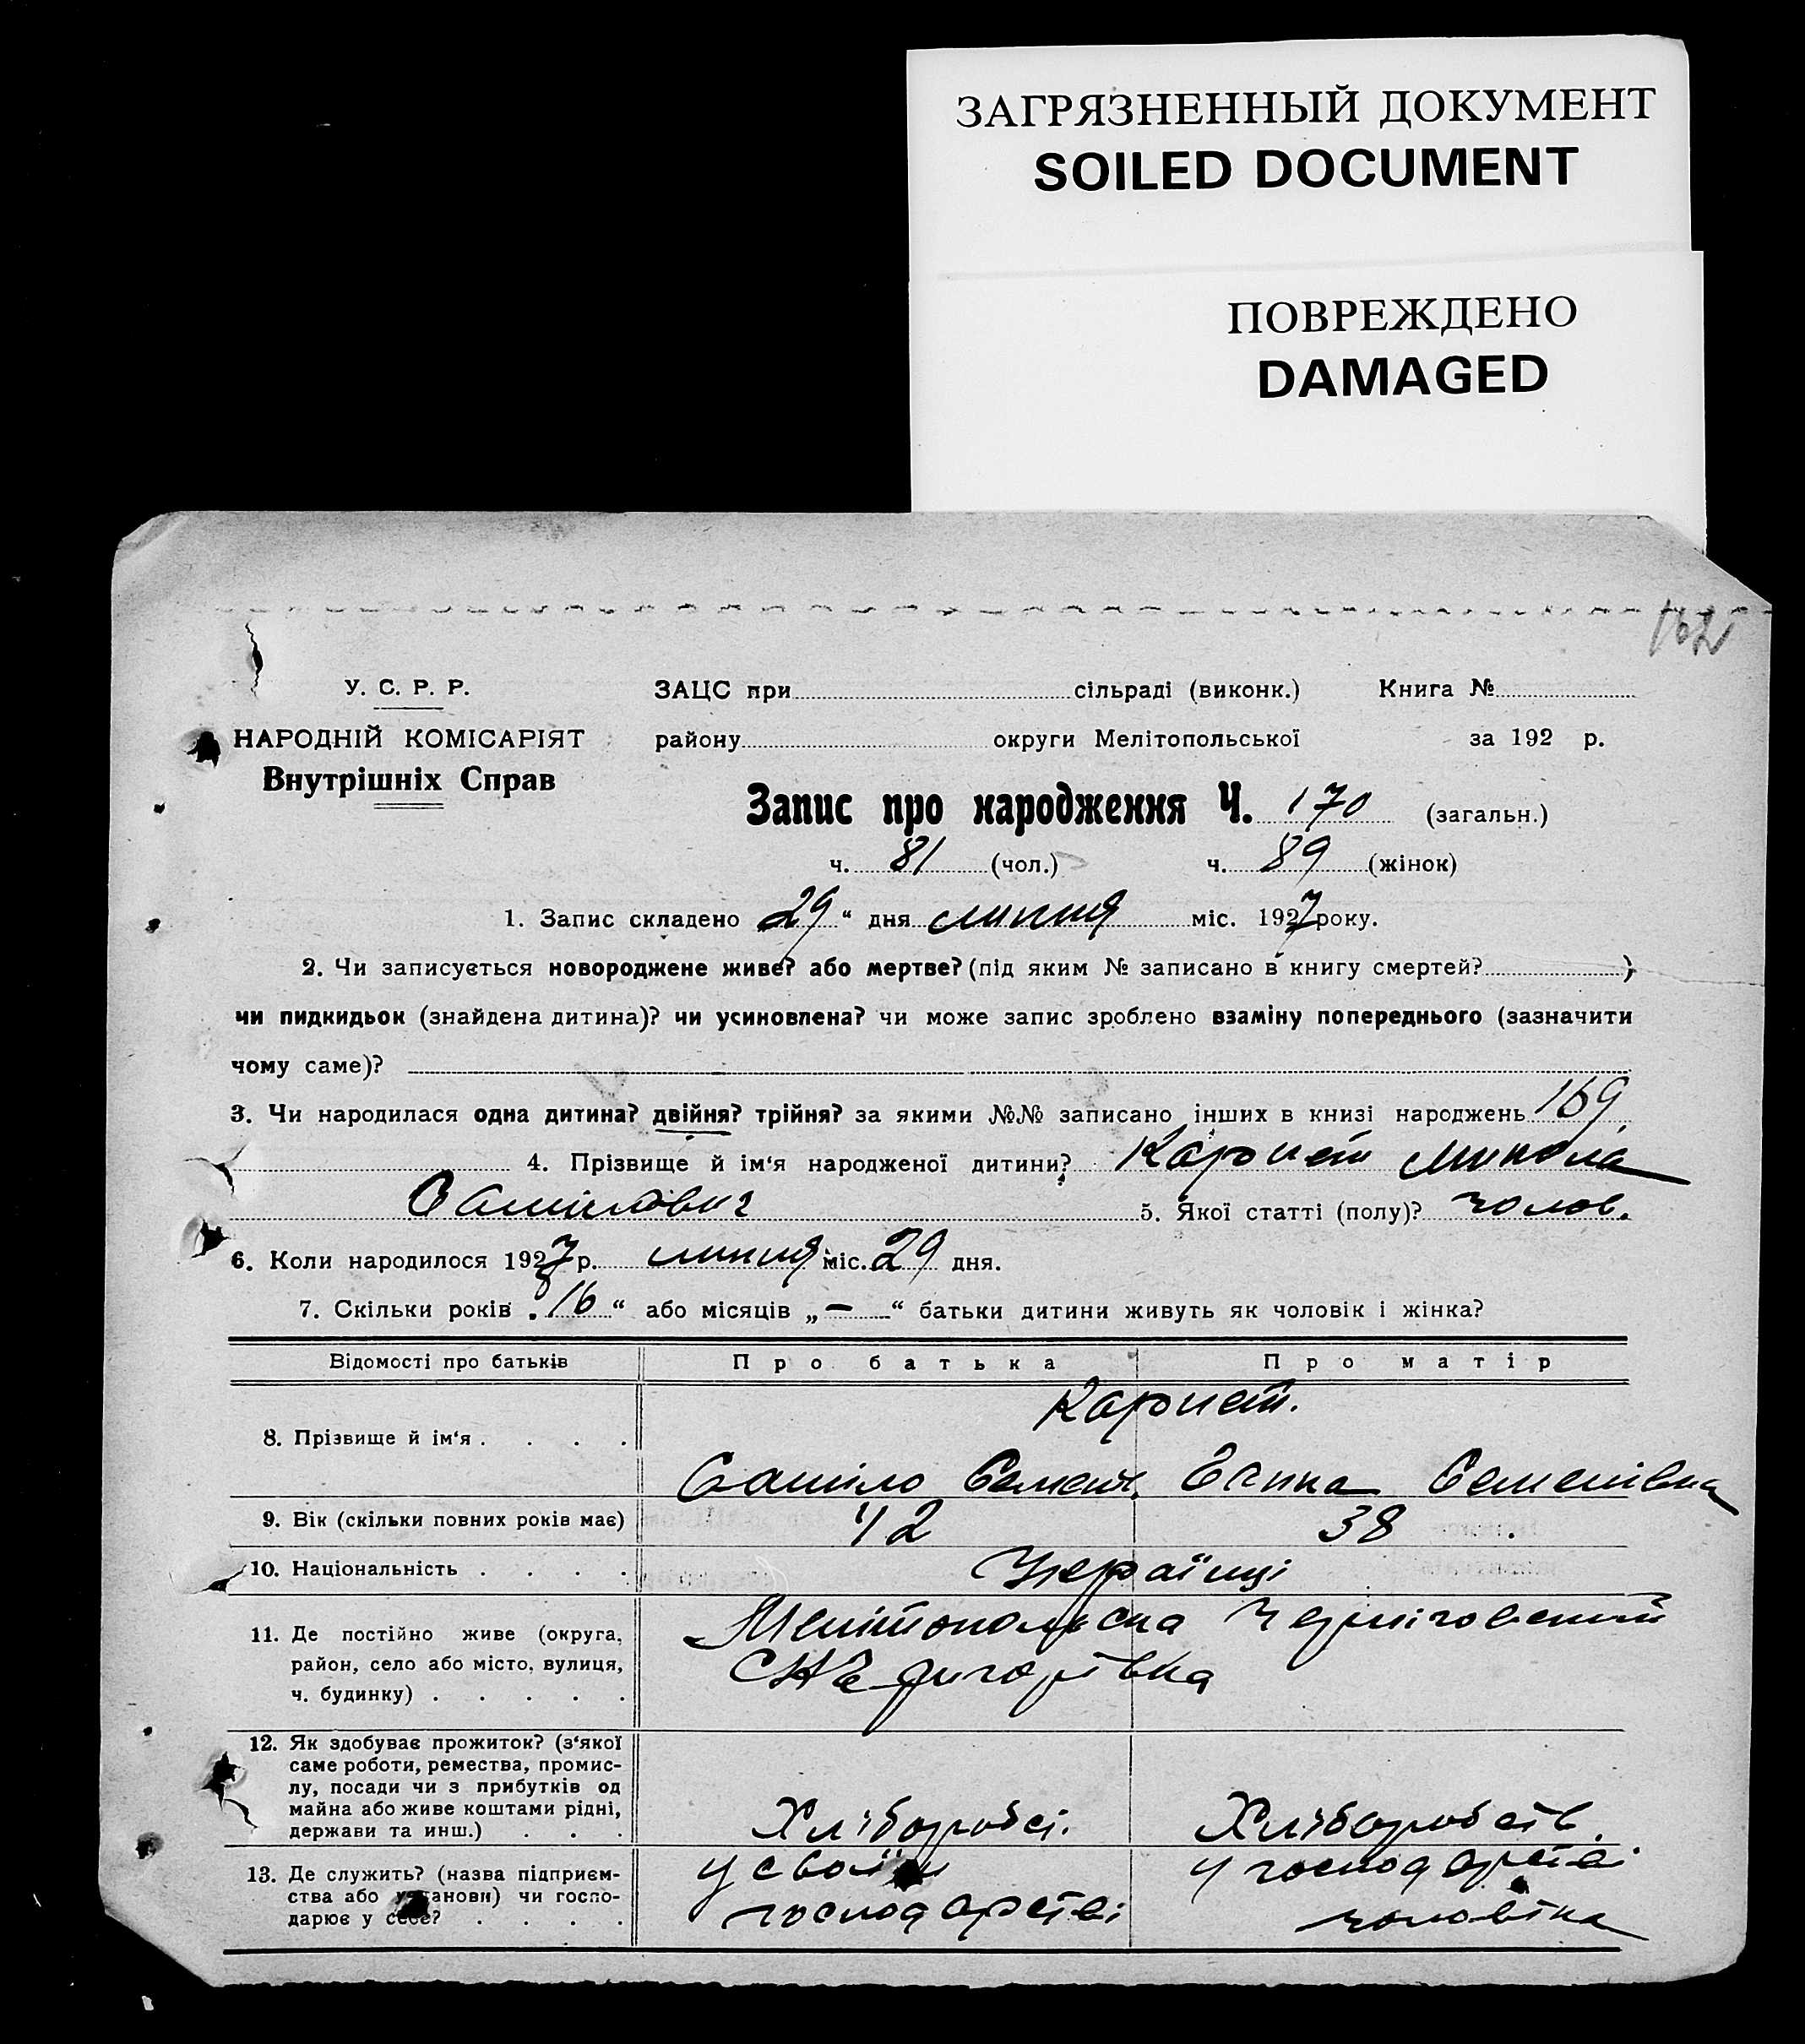 ЗАГРЯЗНЕННЫЙ ДОКУМЕНТ
SOILED DOCUMENT
ПОВРЕЖДЕНО
DAMAGED
162
У. С. Р. Р. ЗАЦС при сільраді (виконк.) Книга №
НАРОДНІЙ КОМІСАРІЯТ району округи Мелітопольської за 192 р.
Внутрішніх Справ
Запис про народження Ч. 170 (загальн.)
ч. 81 (чол.) ч. 89 (жінок)
1. Запис складено 29 “ дня липня міс. 1927 року.
2. Чи записується новороджене живе? або мертве? (під яким № записано в книгу смертей? )
чи пидкидьок (знайдена дитина)? чи усиновлена? чи може запис зроблено взаміну попереднього (зазначити
чому саме)?
3. Чи народилася одна дитина? двійня? трійня? за якими №№ записано інших в книзі народжень 169
4. Прізвище й ім‘я народженої дитини? Микола
5. Якої статті (полу)? чолов.
6. Коли народилося 1927 р. липня міс. 29 дня.
7. Скільки років „16“ або місяців „—“ батьки дитини живуть як чоловік і жінка?
Відомості про батьків Про батька Про матір
8. Прізвище й ім‘я . . . .
Семенівна
9. Вік (скільки повних років має) 42 38
10. Національність . . . . Українці
11. Де постійно живе (округа, Мелітопольска
район, село або місто, вулиця,
ч. будинку) . . . . .
12. Як здобуває прожиток? (з‘якої
саме роботи, ремества, промис-
лу, посади чи з прибутків од
майна або живе коштами рідні,
держави та инш.) . . . Хлібороб
13. Де служить? (назва підприєм- у своїм у господарстві
ства або установи) чи госпо- господарстві чоловіка
дарює у себе? . . . .